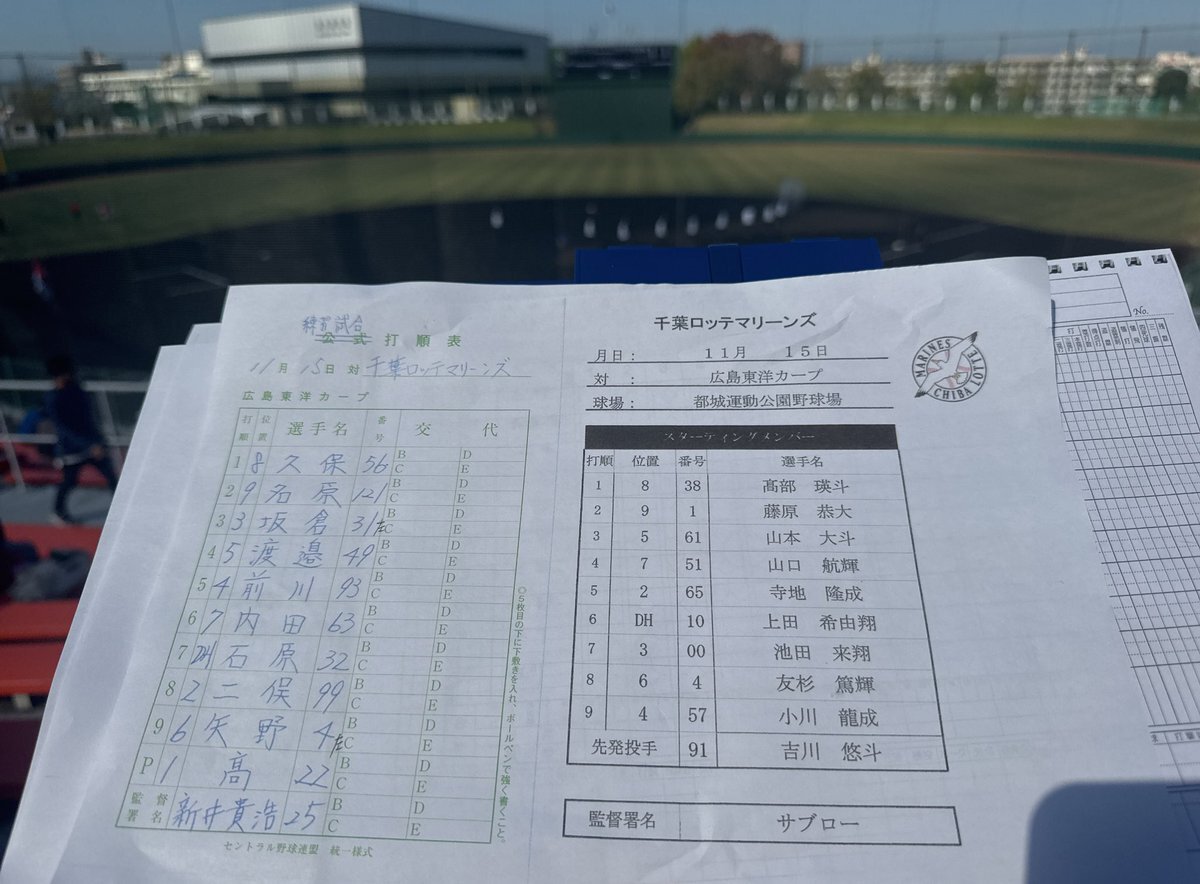 練習試合
公式打順表
11月 15日 対 千葉ロッテマリーンズ
広島東洋カープ
打順 位置 選手名 番号 交代
1 8 久保 56 B C D E
2 9 名原 121 B C D E
3 3 坂倉 31 左 B C D E
4 5 渡邉 49 B C D E
5 4 前川 93 B C D E
6 7 内田 63 B C D E
7 DH 石原 32 B C D E
8 2 二俣 99 B C D E
9 6 矢野 4 左 B C D E
P 1 高 22 B C D E
監督署名 新井貴浩 25 B C D E
セントラル野球連盟 統一様式
◎5枚目の下に下敷きを入れ、ボールペンで強く書くこと。
千葉ロッテマリーンズ
月日: 11月 15日
対 : 広島東洋カープ
球場: 都城運動公園野球場
MARINES
CHIBA LOTTE
スターティングメンバー
打順 位置 番号 選手名
1 8 38 髙部 瑛斗
2 9 1 藤原 恭大
3 5 61 山本 大斗
4 7 51 山口 航輝
5 2 65 寺地 隆成
6 DH 10 上田 希由翔
7 3 00 池田 来翔
8 6 4 友杉 篤輝
9 4 57 小川 龍成
先発投手 91 吉川 悠斗
監督署名 サブロー
No.